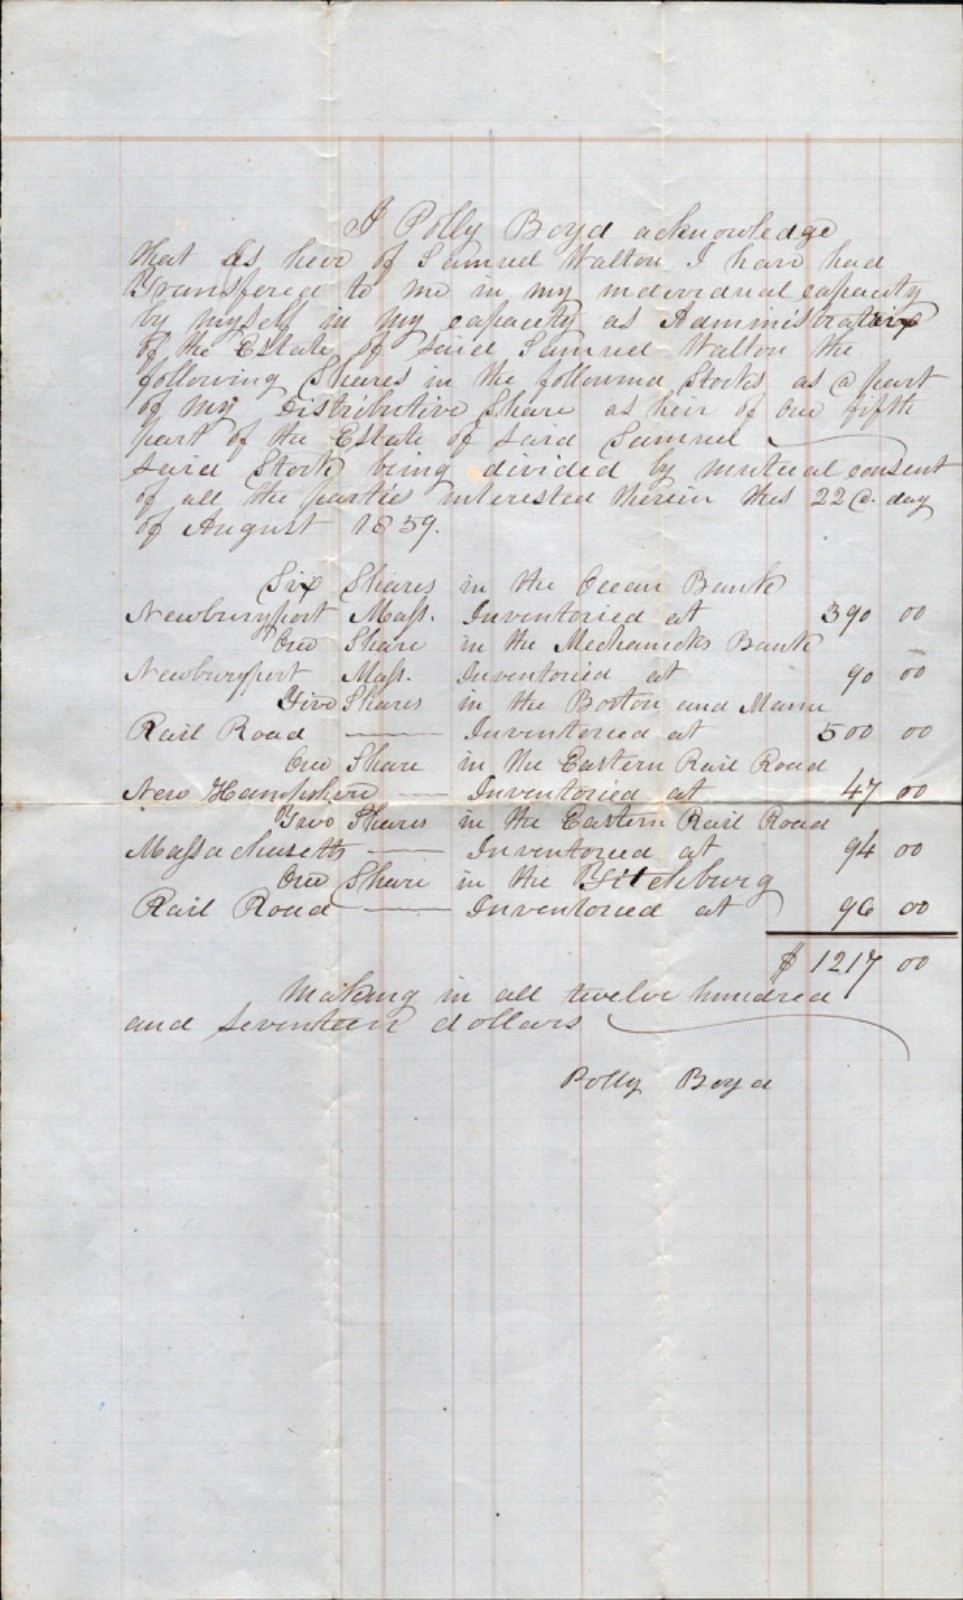 I Polly Boyd acknowledge
that as heir of Samuel Walton I have had
Transfered to me in my individual capacity
by myself in my capacity as Administratrix
of the Estate of said Samuel Walton the
following Shares in the following Stocks as a part
of my Distributive Share as heir of one fifth
part of the Estate of said Samuel
said Stock being divided by mutual consent
of all the parties interested therein this 22d. day
of August 1859.
Six Shares in the Ocean Bank
Newburyport Mass. Inventoried at 390 00
One Share in the Mechanicks Bank
Newburyport Mass. Inventoried at 90 00
Five Shares in the Boston and Maine
Rail Road Inventoried at 500 00
One Share in the Eastern Rail Road
New Hampshire Inventoried at 47 00
Two Shares in the Eastern Rail Road
Massachusetts Inventoried at 94 00
One Share in the Fitchburg
Rail Road Inventoried at 96 00
$ 1217 00
Making in all twelve hundred
and seventeen dollars
Polly Boyd